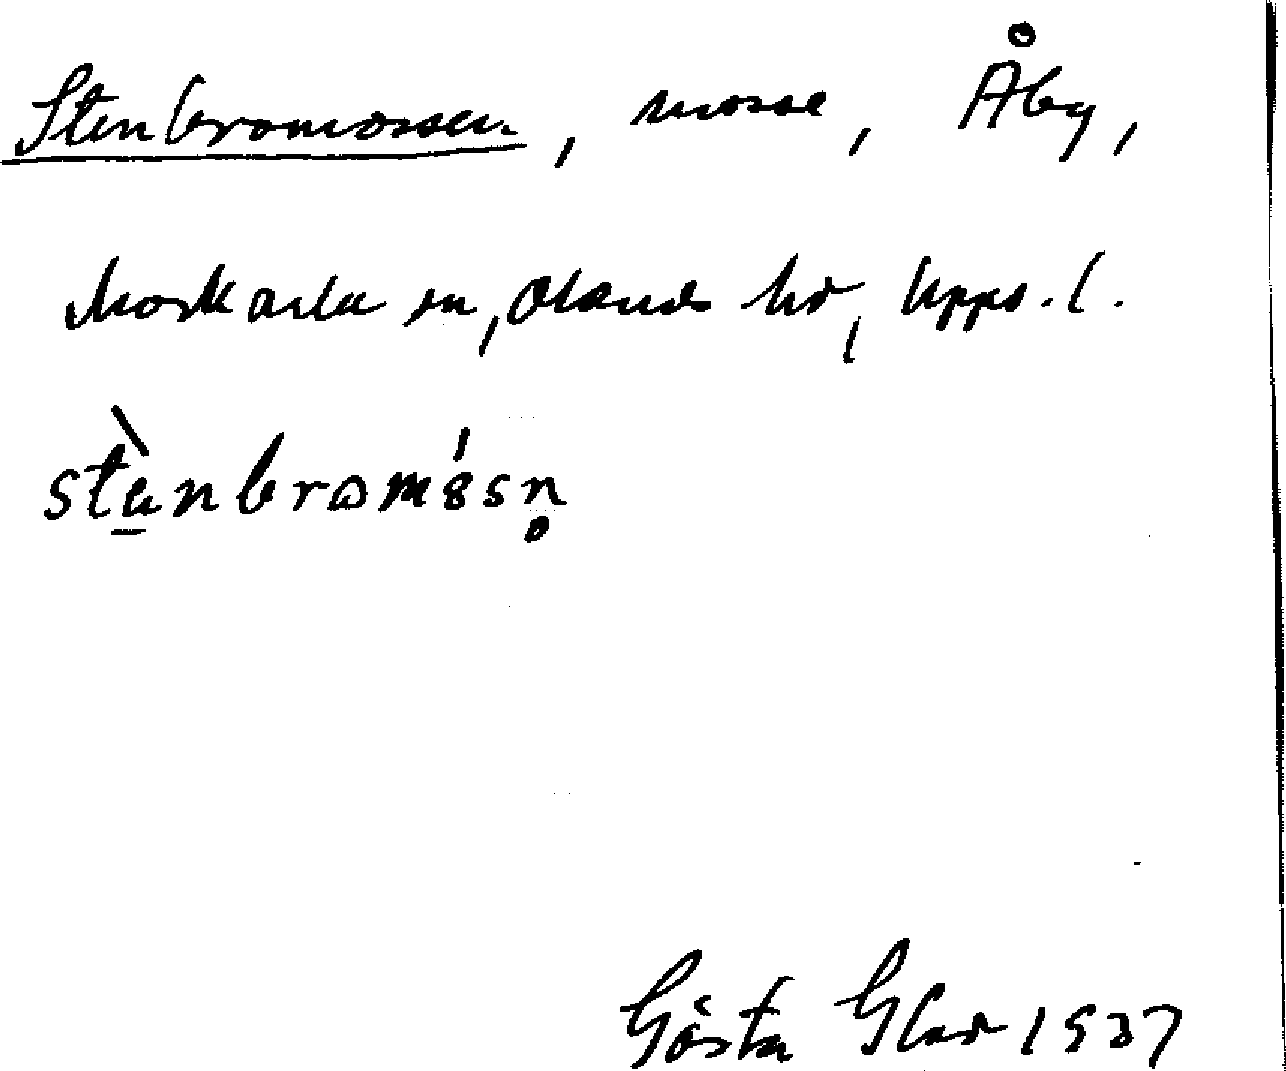 Stenbromossen, mosse, Åby,
Morkarla sn, Olands hd, Upps. l.
stènbromǻssn̥
Gösta 1937